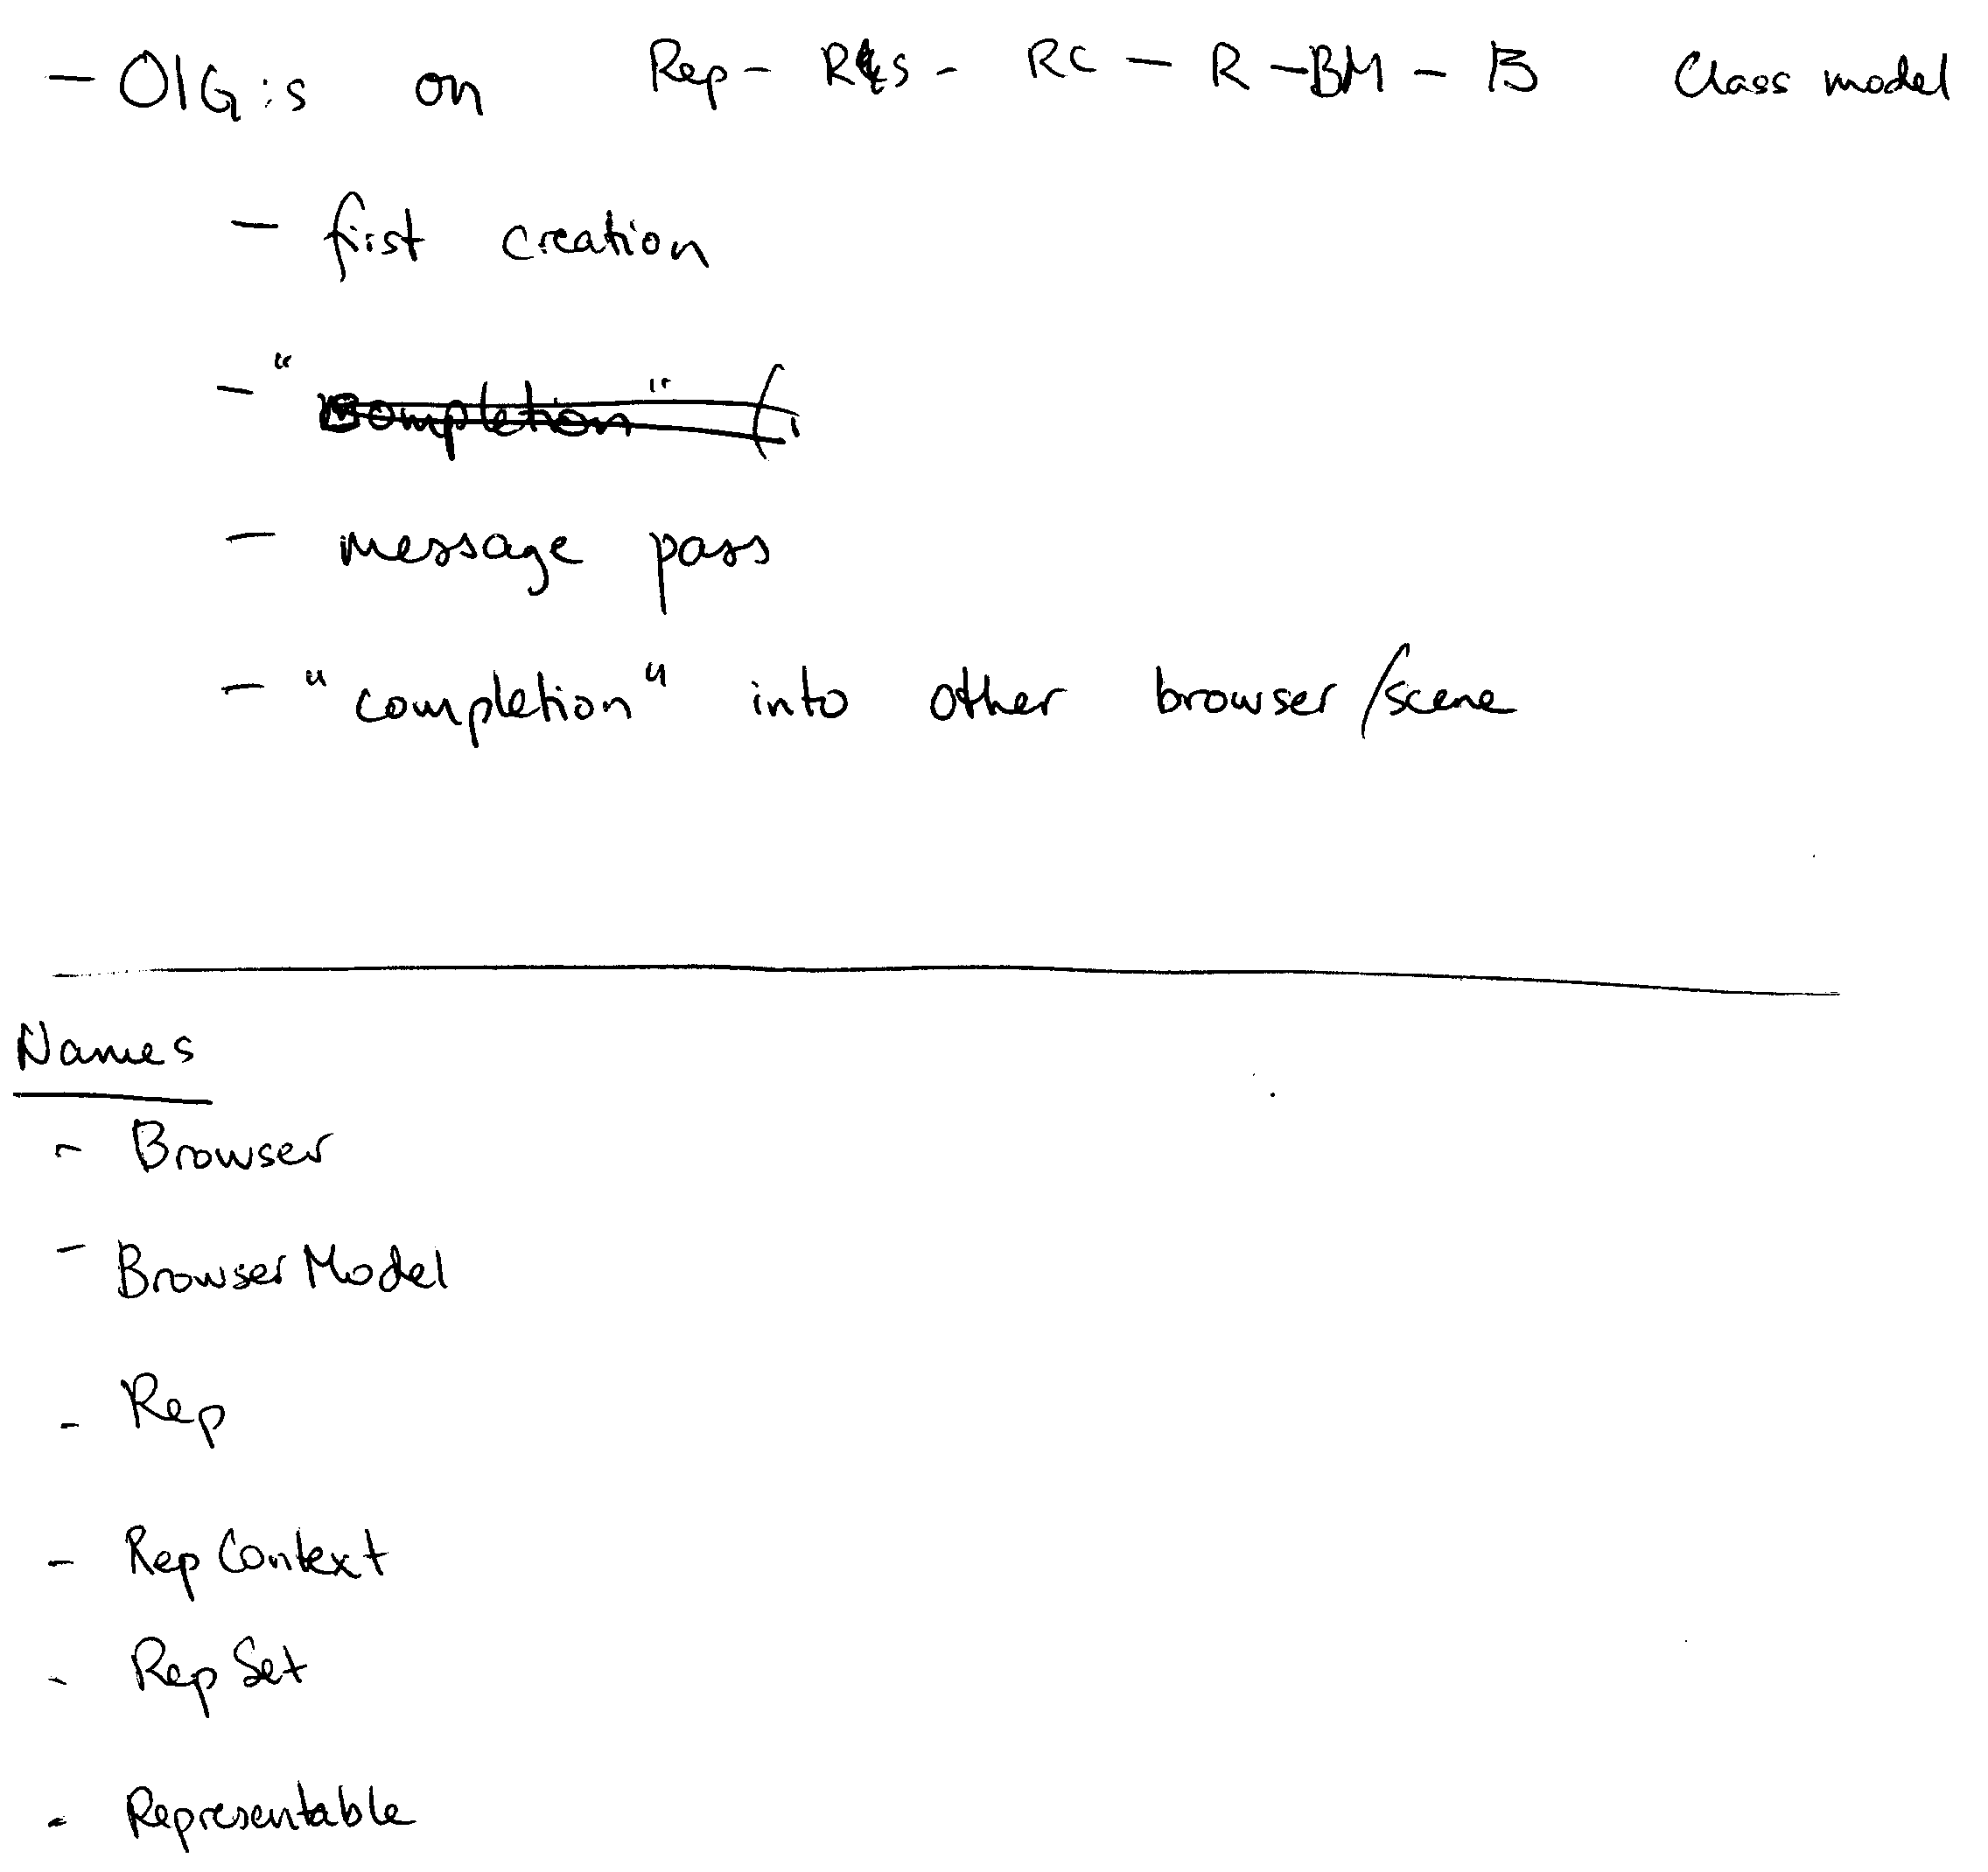 - OIG:s on Rep - RS - RC - R - BM - B Class model
- first creation
- "completion" (
- message pass
- "completion" into other browser/scene
Names
- Browser
- BrowserModel
- Rep
- RepContext
- RepSet
- Representable